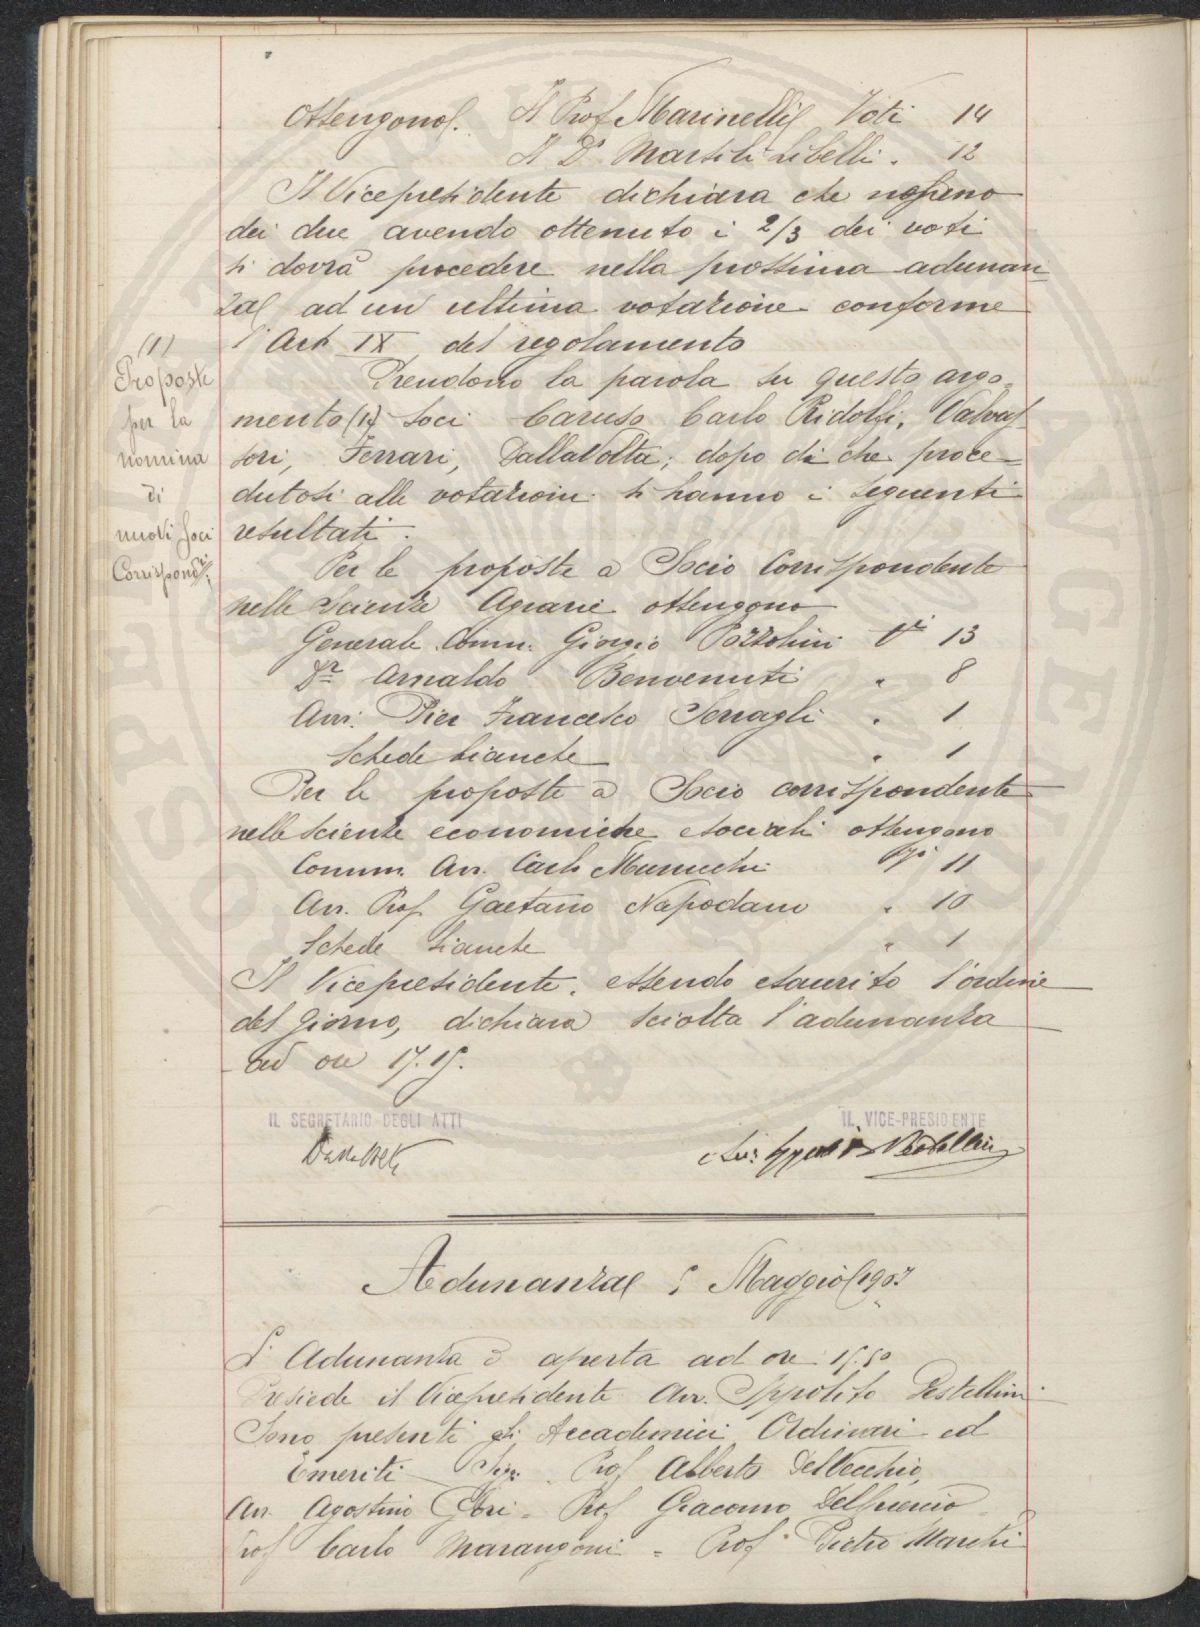 Ottengono. Il Prof Marinelli Voti 14
Il Dr Marsili Libelli. 12
Il Vicepresidente dichiara che nessuno
dei due avendo ottenuto i 2/3 dei voti
si dovrà procedere nella prossima adunan=
za ad un' ultima votazione conforme
l'Art IX del regolamento
Prendono la parola su questo argo=
mento (1) Soci Caruso Carlo Ridolfi, Valvas
sori, Ferrari, DallaVolta; dopo di che proce=
dutosi alle votazioni si hanno i seguenti
resultati.
(1)
Proposte
per la
nomina
di
nuovi Soci
Corrispondti;
Per le proposte a Socio Corrispondente
nelle Scienze Agrarie ottengono
Generale Comm. Giorgio Pozzolini Vti 13
Dr Arnaldo Benvenuti " 8
Avv. Pier Francesco Serragli " 1
Schede bianche " 1
Per le proposte a Socio corrispondente
nelle Scienze economiche e sociali ottengono
Comm. Avv. Carlo Municchi Vti 11
Avv. Prof Gaetano Napodano " 10
Schede bianche " 1
Il Vicepresidente, essendo esaurito l'ordine
del giorno, dichiara sciolta l'adunanza
ad ore 17.15.
IL SEGRETARIO DEGLI ATTI
IL VICE-PRESIDENTE
DallaVolta
Pestellini
Adunanza 5 Maggio 1907
L'Adunanza è aperta ad ore 15.50
Presiede il Vicepresidente Avv. Ippolito Pestellini
Sono presenti gli Accademici Ordinari ed
Emeriti Sigri Prof Alberto DelVecchio,
Avv. Agostino Gori = Prof Giacomo DelGuercio
Prof Carlo Marangoni = Prof Pietro Marchi